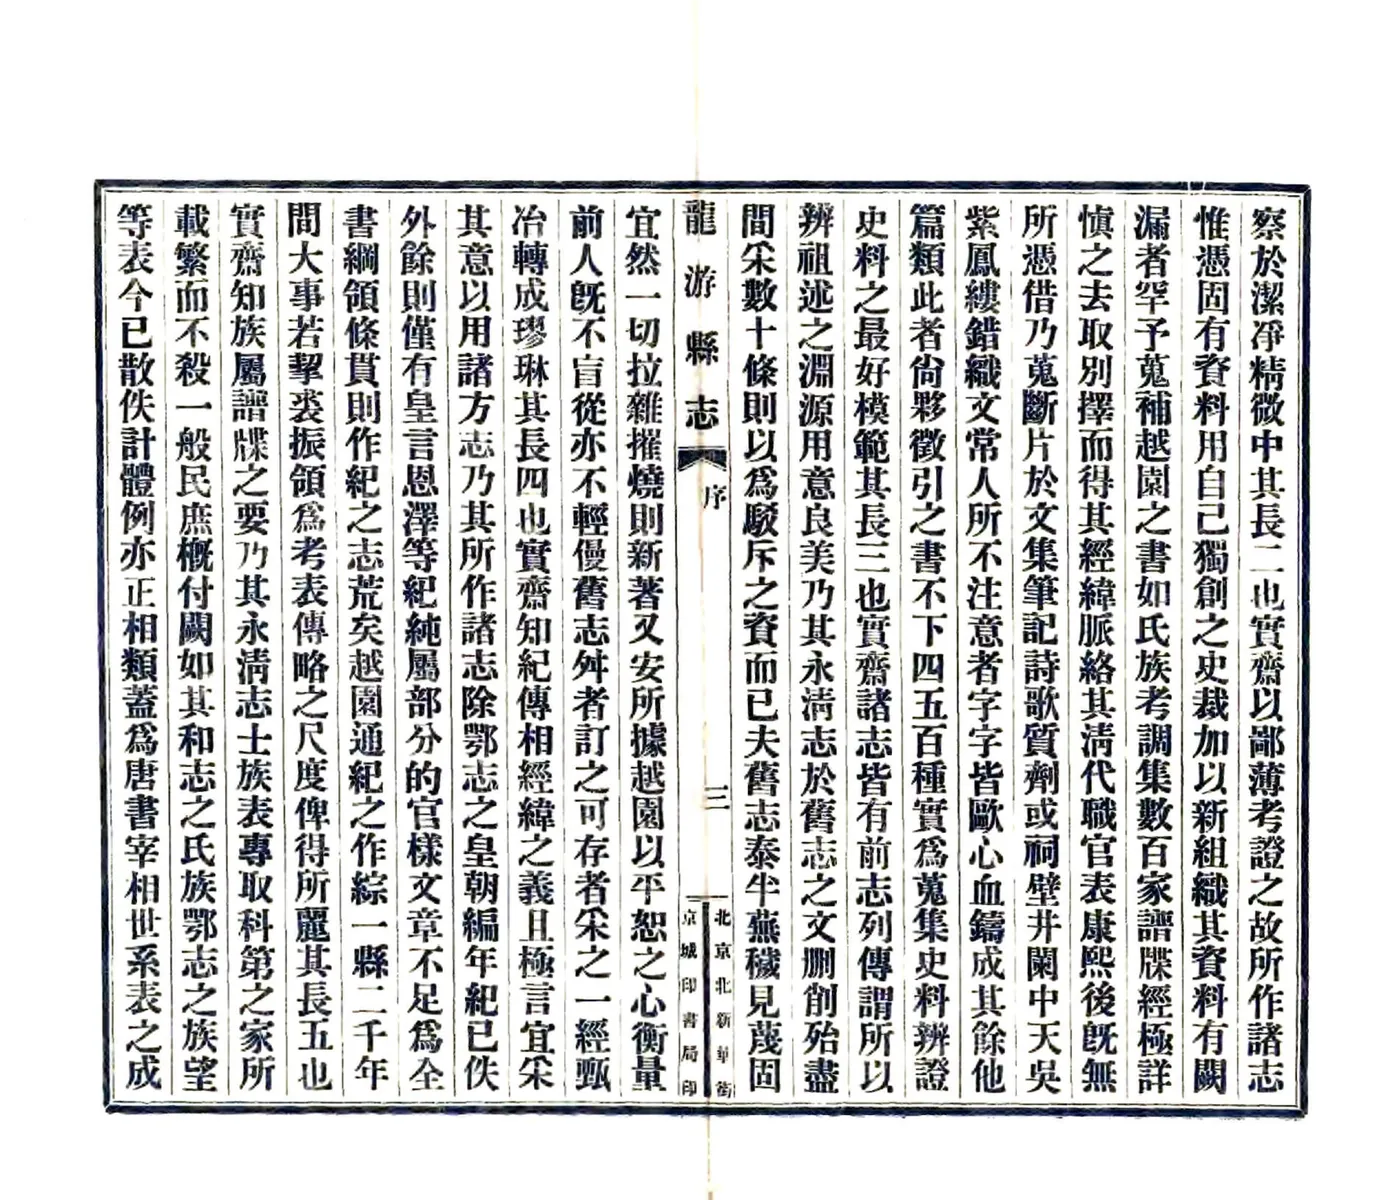 察於潔淨精微中其長二也實齋以鄙薄考證之故所作諸志
惟憑固有資料用自己獨創之史裁加以新組織其資料有闕
漏者罕予蒐補越園之書如氏族考調集數百家譜牒經極詳
愼之去取別擇而得其經緯脈絡其淸代職官表康熙後旣無
所憑借乃蒐斷片於文集筆記詩歌質劑或祠壁井闌中天吳
紫鳳縷錯織文常人所不注意者字字皆歐心血鑄成其餘他
篇類此者尙夥徵引之書不下四五百種實爲蒐集史料辨證
史料之最好模範其長三也實齋諸志皆有前志列傳謂所以
辨祖述之淵源用意良美乃其永淸志於舊志之文删削殆盡
間采數十條則以爲駁斥之資而已夫舊志泰半蕪穢見蔑固
龍游縣志 序 三 北京北新華街京城印書局印
宜然一切拉雜摧燒則新著又安所據越園以平恕之心衡量
前人旣不盲從亦不輕侵舊志舛者訂之可存者采之一經甄
冶轉成璆琳其長四也實齋知紀傳相經緯之義且極言宜采
其意以用諸方志乃其所作諸志除鄂志之皇朝編年紀已佚
外餘則僅有皇言恩澤等紀純屬部分的官樣文章不足爲全
書綱領條貫則作紀之志荒矣越園通紀之作綜一縣二千年
間大事若挈裘振領爲考表傳略之尺度俾得所麗其長五也
實齋知族屬譜牒之要乃其永淸志士族表專取科第之家所
載繁而不殺一般民庶槪付闕如其和志之氏族鄂志之族望
等表今已散佚計體例亦正相類蓋爲唐書宰相世系表之成